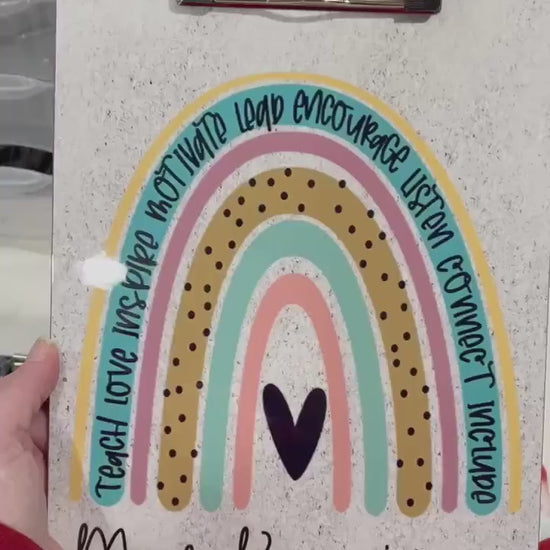 Teach Love Inspire Motivate Lead Encourage Listen Connect Include